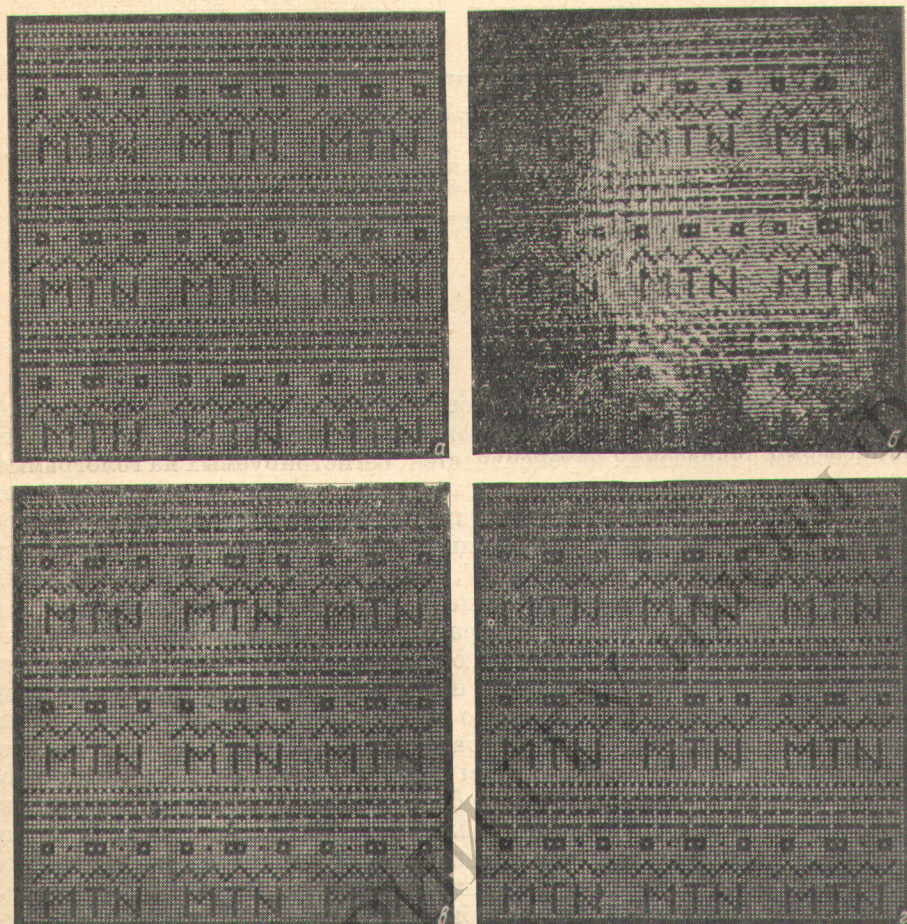 MTN MTN MTN
MTN MTN MTN
MTN MTN MTN
а
MTN MTN
MTN MTN
б
MTN MTN MTN
MTN MTN MTN
MTN MTN MTN
в
MTN MTN MTN
MTN MTN MTN
MTN MTN MTN